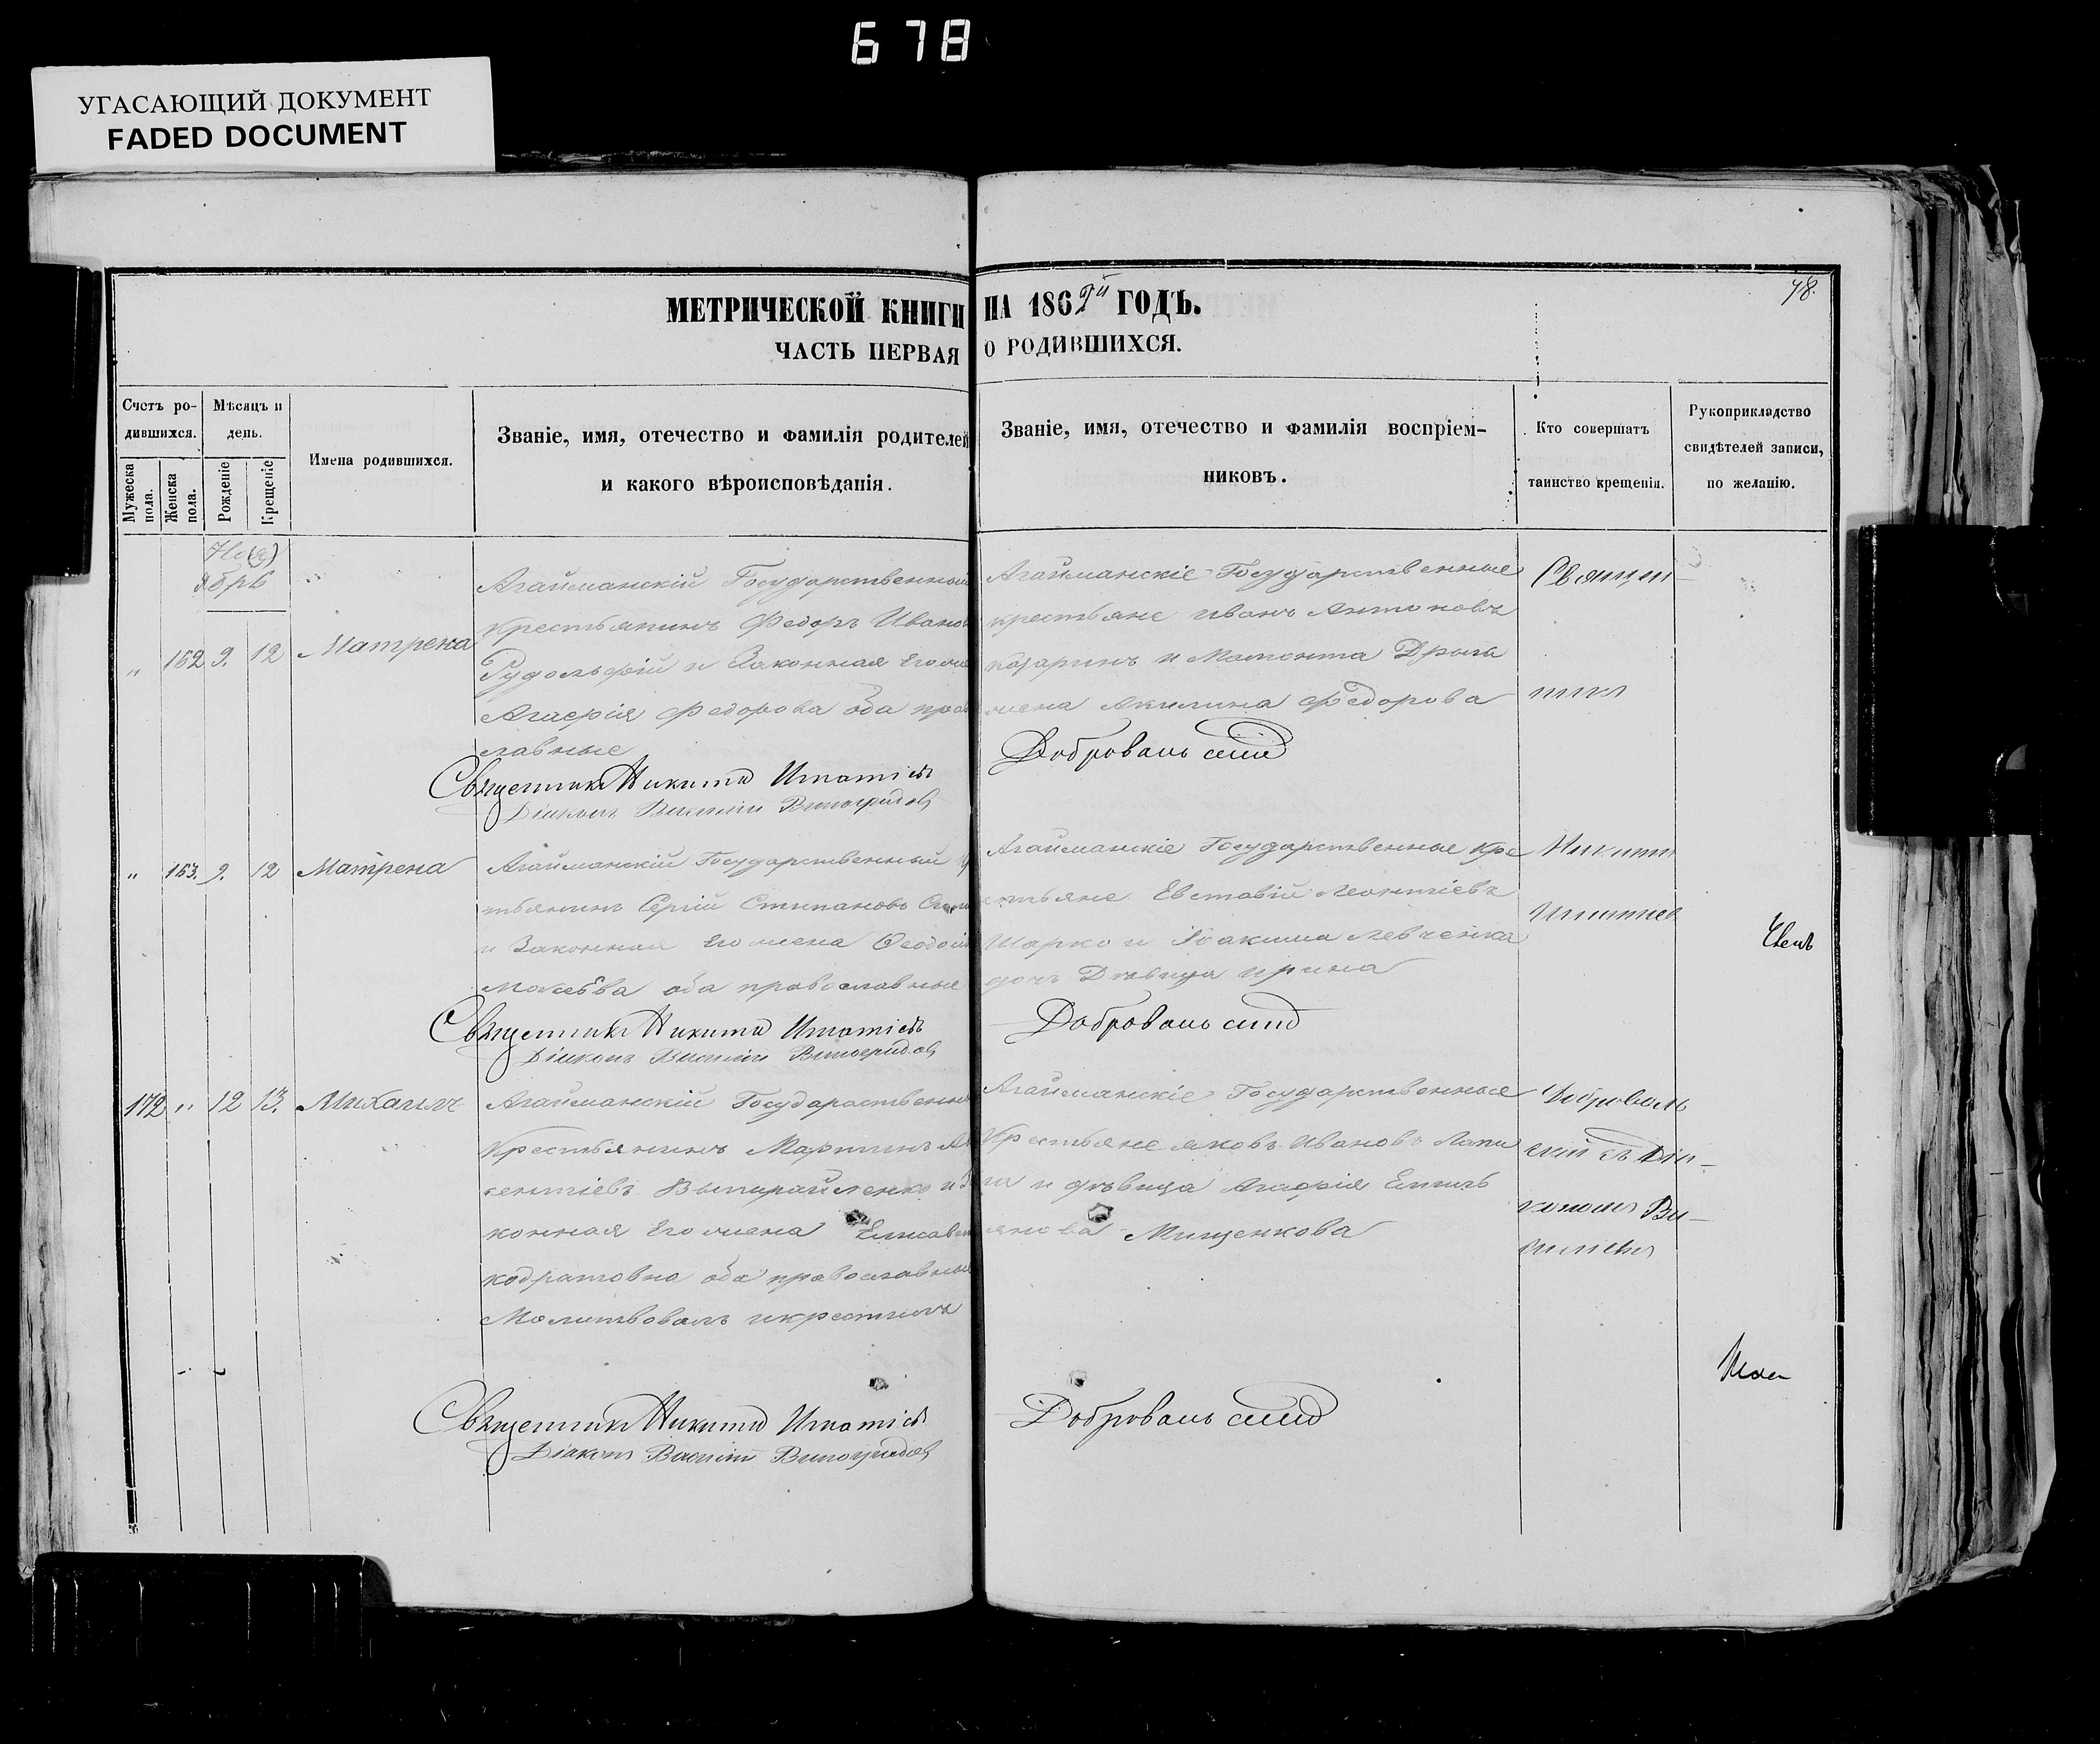 678
УГАСАЮЩИЙ ДОКУМЕНТ
FADED DOCUMENT
78.
МЕТРИЧЕСКОЙ КНИГИ НА 1862й ГОДЪ.
ЧАСТЬ ПЕРВАЯ О РОДИВШИХСЯ.
Счетъ ро-
дившихся.
Мужеска
пола.
Женска
пола.
Мѣсяцъ и
день.
Рожденіе
Крещеніе
Имена родившихся.
Званіе, имя, отечество и фамилія родителей
и какого вѣроисповѣданія.
Званіе, имя, отечество и фамилія воспріем-
никовъ.
Кто совершатъ
таинство крещенія.
Рукоприкладство
свидѣтелей записи,
по желанію.
Но(я)
ябрь
„ 152 9. 12 Матрена
Агайманскій Государственный
крестьянинъ Федоръ Иванов
и Законная Его
Агафія Федорова оба прав
лавные
Священникъ Никита Игнатіев
Діаконъ Василій Виноградов
Агайманскіе Государственные
крестьяне Иванъ Антоновъ
и Мамонта
жена Акилина Федорова
Добровольскій
„ 153. 9. 12 Матрена
Агайманскій Государственный
тьянинъ Сергій Стипановъ
и Законная Его жена Феодосія
оба православные
Священникъ Никита Игнатіев
Діаконъ Василій Виноградов
Агайманскіе Государственные Кре
стьяне Евставій Леонтіевъ
Шарко и Іоакима Левченка
дочь Дѣвица Ирина
Добровольскій
172 „ 12 13. Михаилъ
Агайманскій Государственны
Крестьянинъ Мартинъ
и За
конная Его жена Елисавет
кодратовна оба православные
Молитвовалъ и крестилъ
Священникъ Никита Игнатіев
Діаконъ Василій Виноградов
Агайманскіе Государственные
Крестьяне Яковъ Ивановъ
и дѣвица Агафія Емель
янова Мищенкова
Добровольскій
Священ-
никъ
Никита
Игнатіев
Доброволь
скій съ Діа-
кономъ Ва-